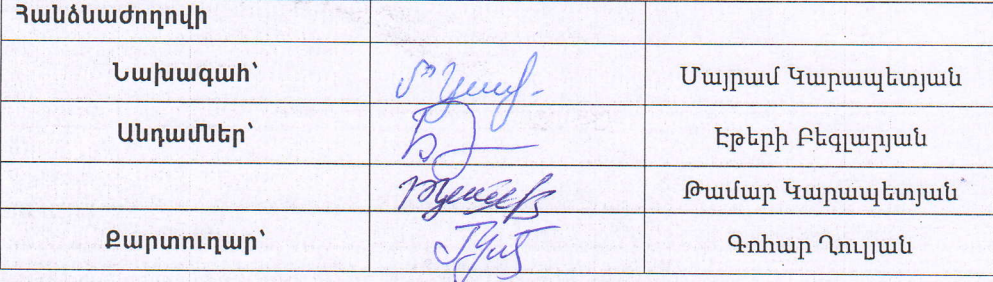 Հանձնաժողովի
Նախագահ՝ Մայրամ Կարապետյան
Անդամներ՝ Էթերի Բեգլարյան
Թամար Կարապետյան
Քարտուղար՝ Գոհար Ղուլյան